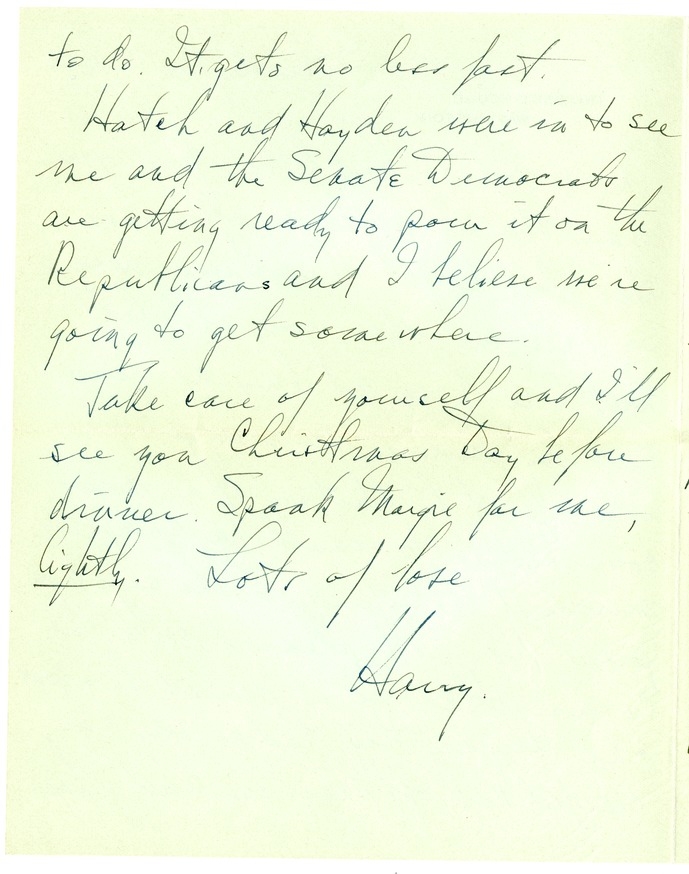 to do. It gets no less fast.
Hatch and Hayden were in to see
me and the Senate Democrats
are getting ready to pour it on the
Republicans and I believe we're
going to get somewhere.
Take care of yourself and I'll
see you Christmas Day before
dinner. Spank Margie for me,
lightly. Lots of love
Harry.